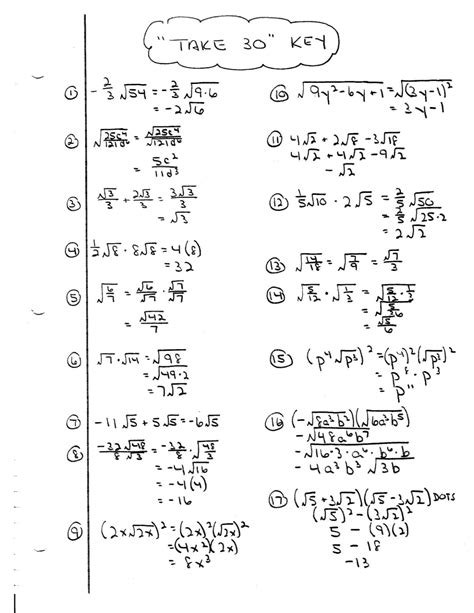 "TAKE 30" KEY
① -2/3 √54 = -2/3 √9·6
= -2√6
② √25c⁴/121d⁶ = √25c⁴/√121d⁶
= 5c²/11d³
③ √3/3 + 2√3/3 = 3√3/3
= √3
④ 1/2 √8 · 8√8 = 4(8)
= 32
⑤ √6/7 = √6/√7 · √7/√7
= √42/7
⑥ √7 · √14 = √98
= √49·2
= 7√2
⑦ -11√5 + 5√5 = -6√5
⑧ -32√48/8√3 = -32/8 · √48/3
= -4√16
= -4(4)
= -16
⑨ (2x√2x)² = (2x)²(√2x)²
= (4x²)(2x)
= 8x³
⑩ √9y²-6y+1 = √(3y-1)²
= 3y-1
⑪ 4√2 + 2√8 - 3√18
4√2 + 4√2 - 9√2
-√2
⑫ 1/5 √10 · 2√5 = 2/5 √50
= 2/5 √25·2
= 2√2
⑬ √14/18 = √7/9 = √7/3
⑭ √5/12 · √1/3 = √5/12 · 1/3
= √5/36
= √5/6
⑮ (p⁴√p³)² = (p⁴)²(√p³)²
= p⁸ · p³
= p¹¹
⑯ (-√8a³b²)(√6a³b⁵)
-√48a⁶b⁷
-√16·3·a⁶·b⁶·b
-4a³b³√3b
⑰ (√5+3√2)(√5-3√2) DOTS
(√5)² - (3√2)²
5 - (9)(2)
5 - 18
-13